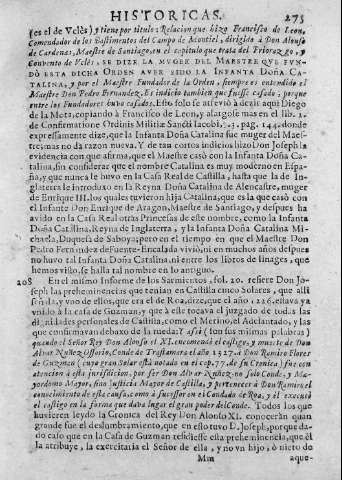 HISTORICAS. 275
(es el de Vclès) y tiene por titulo: Relacion que hizo Francisco de Leon,
Comendador de los Bastimentos del Campo de Montiel, dirigida à Don Alonso
de Cardenas, Maestre de Santiago, en el capitulo que trata del Priorazgo, y
Convento de Vclès, SE DIZE LA MVGER DEL MAESTRE QVE FVN-
DÒ ESTA DICHA ORDEN AVER SIDO LA INFANTA DOÑA CA-
TALINA, y por el Maestre Fundador de la Orden, siempre es entendido el
Maestre Don Pedro Fernandez. Es indicio tambien que fuesse casado, porque
entre los Fundadores huvo casados. Esto solo se atreviò à dezir aqui Diego
de la Mota, copiando à Francisco de Leon, y alargose mas en el lib. 2.
de Confirmatione Ordinis Militiæ Sancti Iacobi, §.3. pag. 144. donde
expressamente dize, que la Infanta Doña Catalina fue muger del Maes-
tre; mas no dà razon nueva. Y de tan cortos indicios hizo Don Joseph la
evidencia con que afirma, que el Maestre casò con la Infanta Doña Ca-
talina, sin considerar que el nombre Catalina es muy moderno en Espa-
ña, y que nunca le huvo en la Casa Real de Castilla, hasta que la de In-
glaterra le introduxo en la Reyna Doña Catalina de Alencastre, muger
de Enrique III. los quales tuvieron hija Catalina, que es la que casò con
el Infante Don Enrique de Aragon, Maestre de Santiago, y despues ha
avido en la Casa Real otras Princesas de este nombre, como la Infanta
Doña Catalina, Reyna de Inglaterra, y la Infanta Doña Catalina Mi-
chaela, Duquesa de Saboya; pero en el tiempo en que el Maestre Don
Pedro Fernandez de Fuente-Encalada viviò, ni en muchos años despues
no huvo tal Infanta Doña Catalina, ni entre los libros de linages, que
hemos visto, se halla tal nombre en lo antiguo.
208 En el mismo Informe de los Sarmientos, fol. 20. refiere Don Jo-
seph las prehemínencias que tenian en Castilla cinco Solares, que alli
señala, y vno de ellos, que era el de Roa, dize, que el año 1226. estava ya
vnido à la casa de Guzman, y que à este tocava el juzgado de todas las
dignidades personales de Castilla, como el Merino, el Adelantado, y las
que consumavan debaxo de la rueda: Y assi (son sus mismas palabras)
quando el Señor Rey Don Alonso el XI. encomendò el castigo, y muerte de Don
Alvar Nuñez Ossorio, Conde de Trastamara el año 1327. à Don Ramiro Florez
de Guzman (cuyo gran Solar està notado en el cap. 77. de su Cronica) fue con
atencion à esta jurisdicion, por ser Don Alvar Nuñez no solo Conde, y Ma-
yordomo Mayor, sino Justicia Mayor de Castilla, y pertenecer à Don Ramiro el
conocimiento de esta causa, como à sucessor en el Condado de Roa, y èl executò
el castigo en la forma que daba lugar el gran poder del Conde. Todos los que
huvieren leydo la Cronica del Rey Don Alonso XI. conoceràn quan
grande fue el deslumbramiento, que en esto tuvo D. Joseph, porque da-
do caso que en la Casa de Guzman residiesse esta prehemínencia, que èl
la atribuye, la exercitaria el Señor de ella, y no vn hijo, ò nieto de
Mm aque-